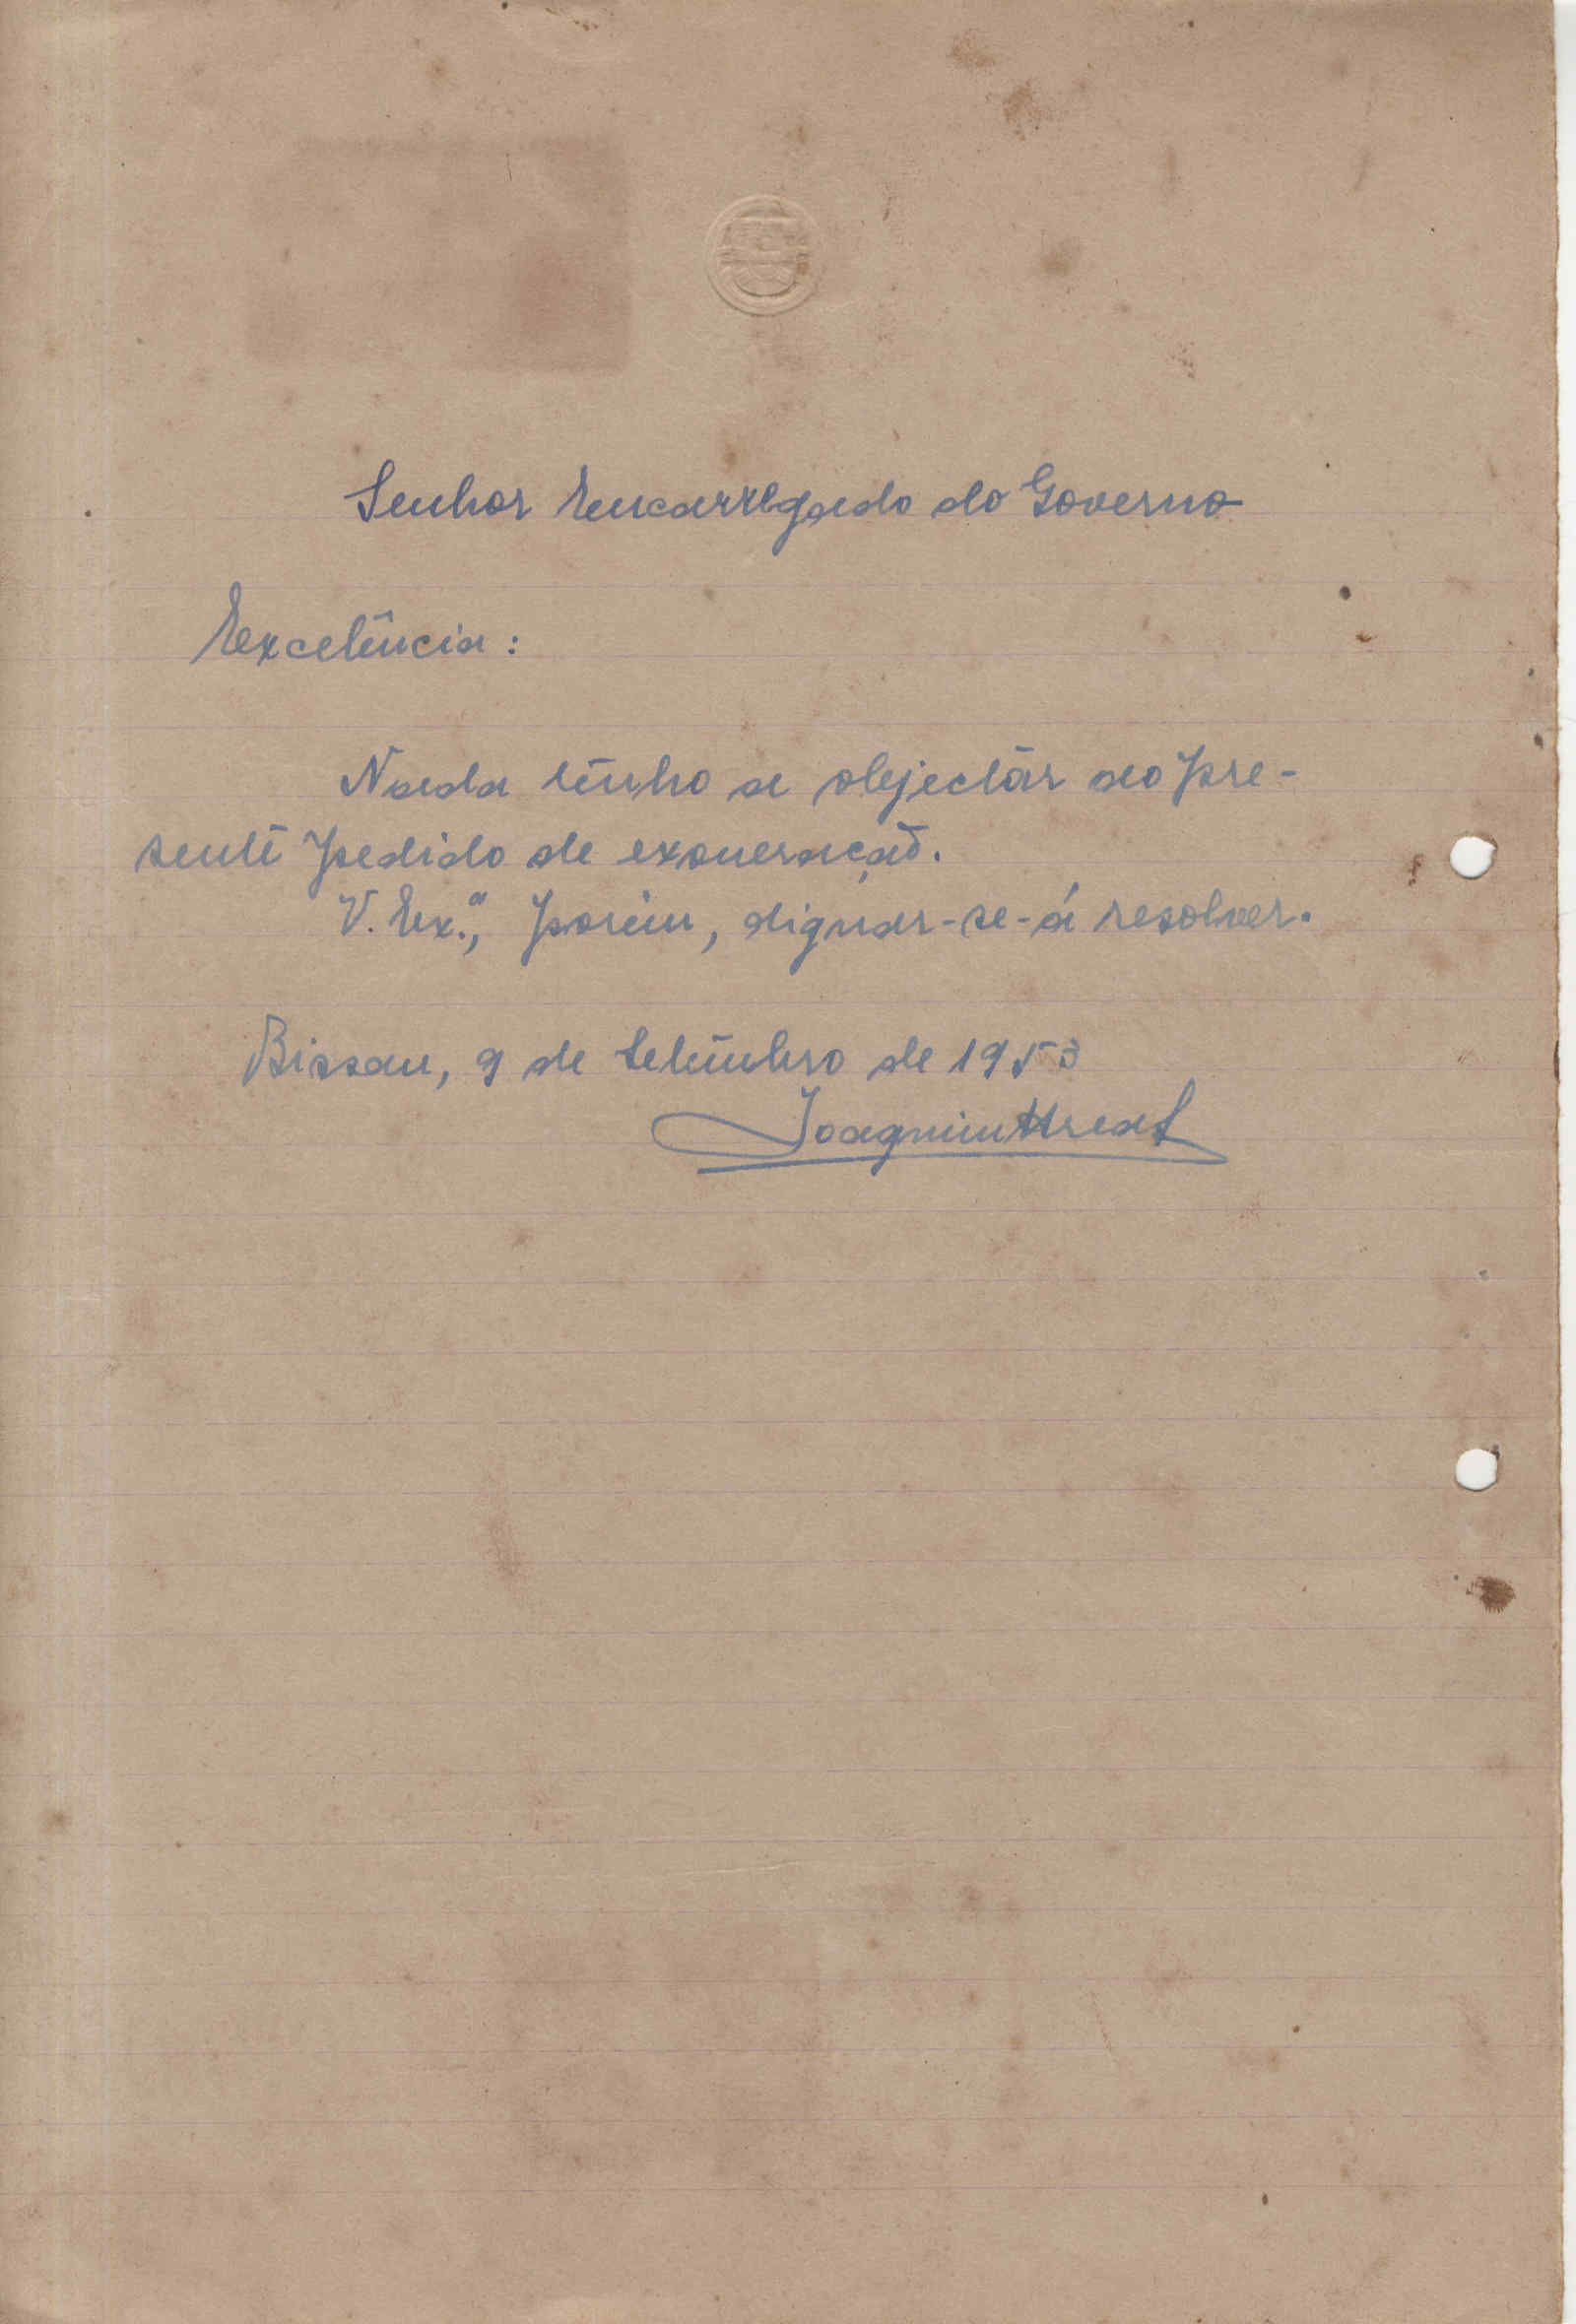 Senhor Encarregado do Governo
Excelência:
Nada tenho a objectar ao pre-
sente pedido de exoneração.
V. Ex.ª, porém, dignar-se-á resolver.
Bissau, 9 de Setembro de 1953
Joaquim